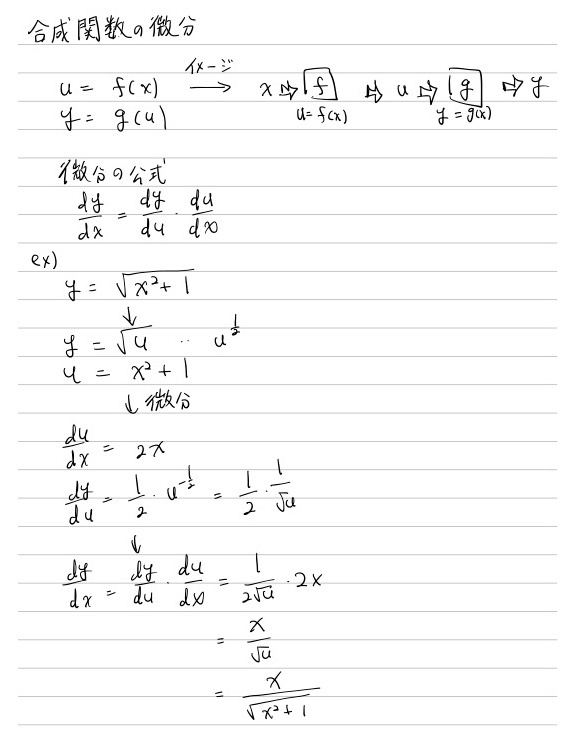 合成関数の微分
u = f(x) イメージ → x ⇨ f ⇨ u ⇨ g ⇨ y
y = g(u) u = f(x) y = g(x)
微分の公式
dy/dx = dy/du · du/dx
ex)
y = √(x²+1)
↓
y = √u ‥ u^(1/2)
u = x²+1
↓ 微分
du/dx = 2x
dy/du = 1/2 · u^(-1/2) = 1/2 · 1/√u
↓
dy/dx = dy/du · du/dx = 1/(2√u) · 2x
= x/√u
= x/√(x²+1)